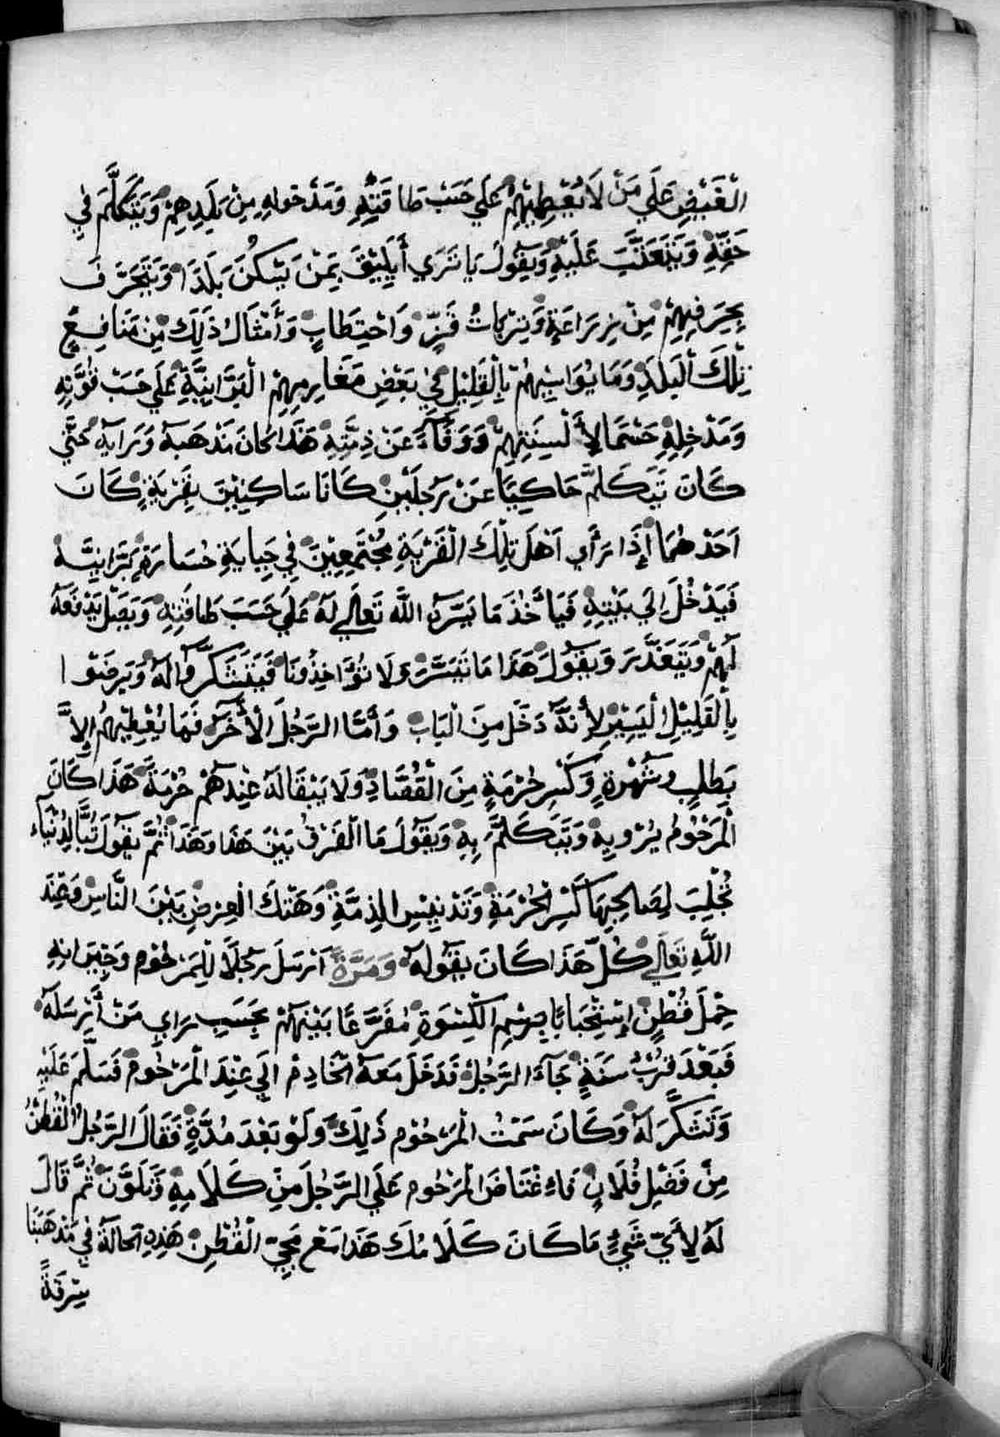 الْغَبْضِ عَلَي مَنْ لَا يُعْطِيْهِمْ عَلَي حَسَبْ طَاقَتِهِ وَمَدْخولهِ مِنْ بَلَدِهِمْ وَيَتَكَلَّمَ في
حَقِّهِ وَيَتَعَتَّبَ عَلَيْهِ وَيَقُولُ يَا تَرَي أَيَلِيْقَ بِمَنْ يَسْكُنُ بَلَدًا وَيَتَجَرَّفَ
بِجَرَفِهِمْ مِنْ زِرَاعَةٍ وَبِزْكَاتُ قَزٍّ وَاحْتِطَابٍ وَأَمْثَالُ ذَلِكَ مِن مَنَافِعٍ
تِلْكَ الْبَلَدِ وَمَا يُوَاسِيْهُمْ بِالْقَلِيْلِ فِيْ بَعْضِ مَغَارِمِهِمْ الْبَرَّانِيَّةِ عَلَي حَسَبْ قُوَّتِهِ
وَمَدْخِلِهِ حَسْمًا لِأَلْسِنَتِهِمْ وَوَفَآءً عَنْ ذِمَّتِهِ هَذَا كَانَ مَذْهَبهُ وَرَايهِ حَتَّي
كَانَ يَتَكَلَّمْ حَاكِيًا عَنْ رَجُلَيْنِ كَانَا سَاكِنِيْنَ بِقَرْيَةٍ كَانَ
اَحَدْهُمَا إِذَا رَأَي اَهْلَ تِلْكَ الْقَرْيَةِ مُجْتَمِعِيْنَ فِي جِبَايَةِ خَسَارَةٍ بَرَّانِيَّة
فَيَدْخُلَ اِلَي بَيْتِهِ فَيَأخُذَ مَا يَسَّرَهُ اللَّهَ تَعَالَي لَهُ عَلَي حَسَبَ طَاقَتِهِ وَيَصِلْ يَدْفَعَهُ
لَهِمْ وَيَتَعَذَّرَ وَيَقُولَ هَذَا مَا تَيَسَّرَ وَلَا تُؤَاخِذُونَا فَيَتَشَكَّرُوا لَهُ وَيَرضَوا
بِالْقَلِيْلِ الْيَسِيْرِ لِأَنَّهُ دَخَل مِنَ الْبَابِ وَأَمَّا الرَّجُلَ الْأَخَرُ فَمَا يُعْطِيْهُم إِلاَّ
بِطَلَبٍ وَشُهْرَةٍ وَكَسْرِ حُرْمَةٍ مِنَ الْقُصَّادِ وَلَا يَبْقَا لَهُ عِنْدِهُمْ حُرْمَةً هَذَا كَانَ
الْمَرْحُوْمُ يُرْوِيهِ وَيَتَكَلَّمْ بِهِ وَيَقُولَ مَا الْفَرْقُ بَيْنَ هَذَا وَهَذَا ثُمَّ يَقُولَ تُبًّا لِدُنْيَاء
تُجْلِبَ لِصَاحِبِهَا كَسْرِ الْحُرْمَةِ وَتَدْنِيْسِ الذِمَّةِ وَهَتْكَ الْعِرْضِ بَيْنَ النَّاسِ وَعِنْدَ
اللَّهِ تَعَالَي كُلُّ هَذَا كَانَ يَقُولهُ وَمَرَّةً اَرْسَلَ رَجُلًا لِلْمَرْحُوْم وَجِيْرَانِهِ
حِمْلَ قُطْنٍ إِسْتِحْبَابًا بِرَسْمِ الْكِسْوَةِ مُفَرَّعًا بَيْنَهُمْ بِحَسَبِ رَاي مَنْ أَرْسَلَهُ
فَبَعْدَ قُرْبْ سَنَةٍ جَآءَ الرَّجُلْ فَدَخَلَ مَعَهُ الْخَادِمْ اِلَي عِنْدَ الْمَرْحُومْ فَسَلَّمَ عَلَيْهِ
وَتَشَكَّرَ لَهُ وَكَانَ سَمْتُ الْمَرْحُوْم ذَلِكَ وَلَوْ بَعْدَ مُدَّةٍ فَقَالَ الرَّجُلُ الْقُطْنُ
مِنْ فَضْلِ فُلَانٍ فَاغْتَاضَ الْمَرْحُوم عَلَي الرَّجُلَ مِنْ كَلَامِهِ وَتَلَوَّنَ ثُمَّ قَالَ
لَهُ لِأَيِّ شَيْءٍ مَا كَانَ كَلَامُكَ هَذَا مَعْ مَجِيْ الْقُطْنِ هَذِهِ الْحَالَةُ في مَذْهَبنَا
سِرْقَةً